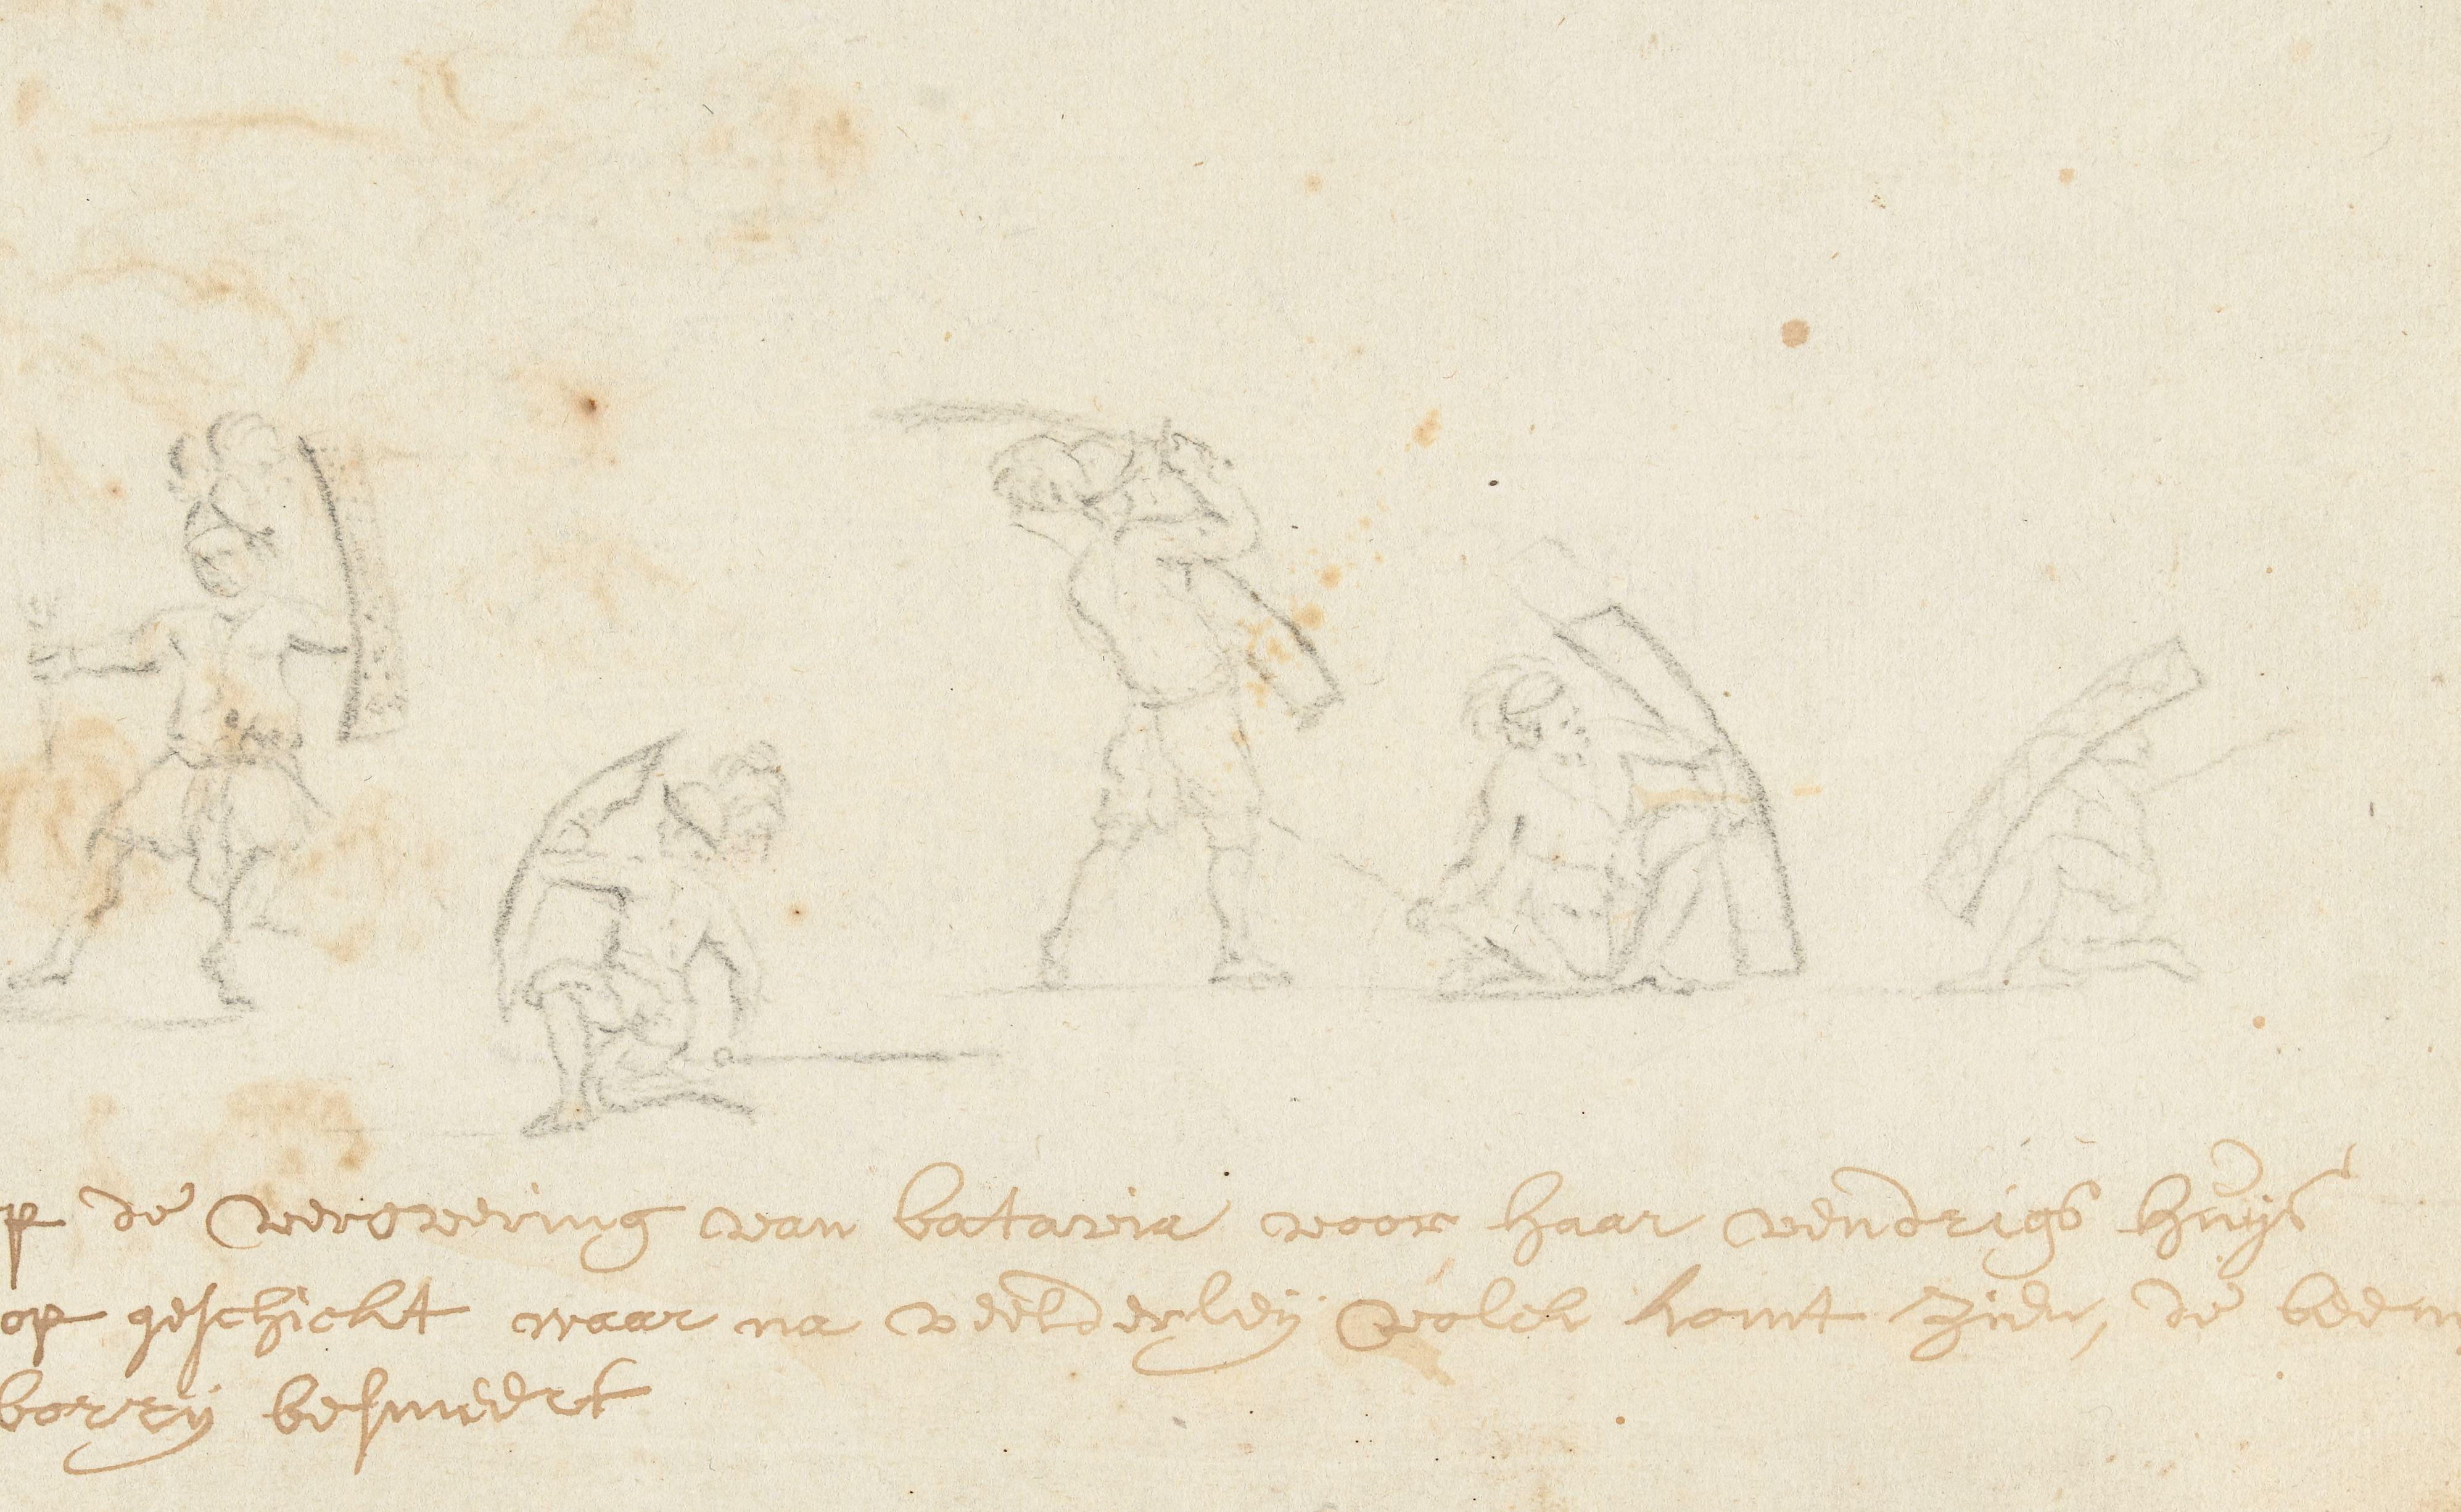 p de verovering van batavia voor haar vendrigs huijs
op geschickt waar na veelderleij volck komt zien, de been
borrij besmeert